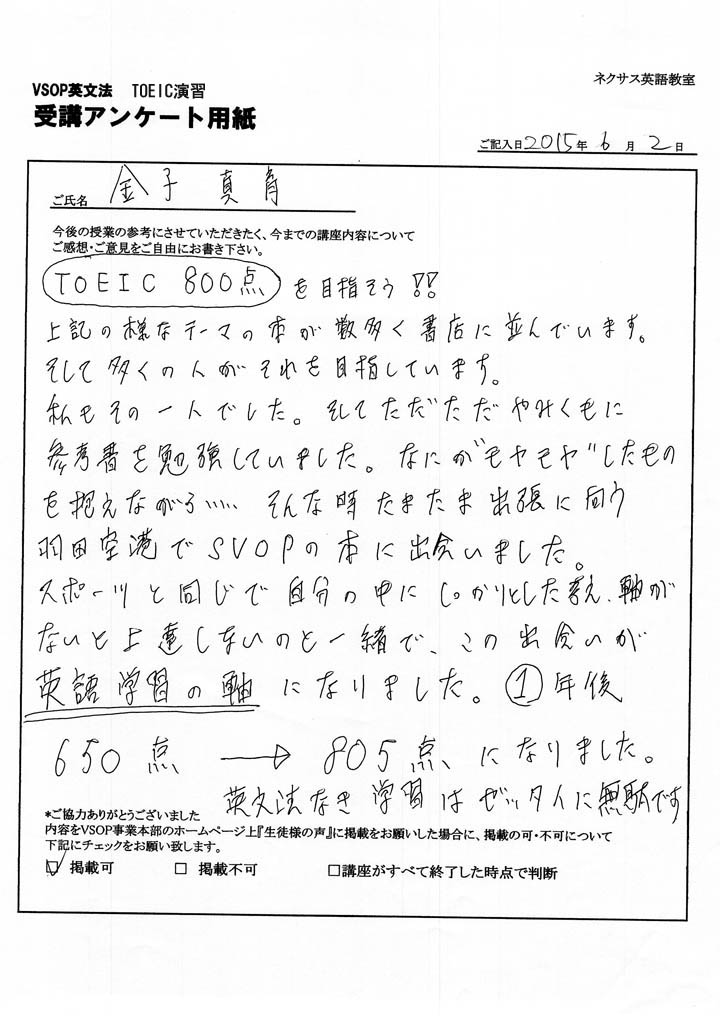 ネクサス英語教室
VSOP英文法 TOEIC演習
受講アンケート用紙
ご記入日2015年 6月 2日
ご氏名 金子 真育
今後の授業の参考にさせていただきたく、今までの講座内容について
ご感想・ご意見をご自由にお書き下さい。
TOEIC 800点 を目指そう!!
上記の様なテーマの本が数多く書店に並んでいます。
そして多くの人がそれを目指しています。
私もその一人でした。そしてただただやみくもに
参考書を勉強していました。なにか"モヤモヤ"したもの
を抱えながら…… そんな時たまたま出張に向う
羽田空港でSVOPの本に出会いました。
スポーツと同じで自分の中にしっかりとした考え、軸が
ないと上達しないのと一緒で、この出会いが
英語学習の軸になりました。①年後
650点 → 805点、になりました。
英文法なき学習はゼッタイに無駄です
*ご協力ありがとうございました
内容をVSOP事業本部のホームページ上『生徒様の声』に掲載をお願いした場合に、掲載の可・不可について
下記にチェックをお願い致します。
☑ 掲載可 □ 掲載不可 □講座がすべて終了した時点で判断